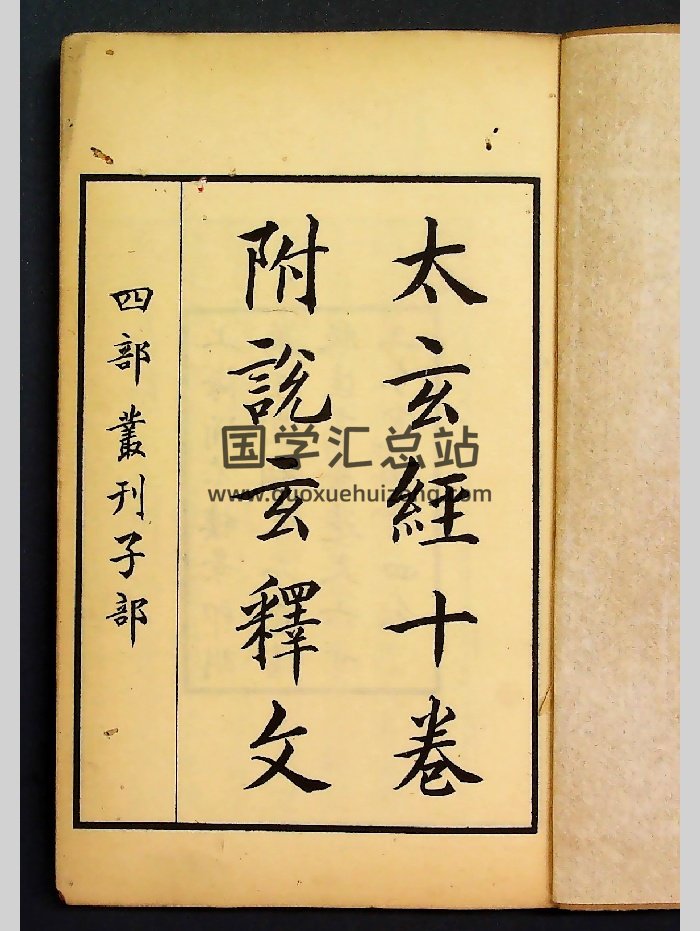 太玄經十卷
附說玄釋文
四部叢刊子部
国学汇总站
www.guoxuehuizong.com